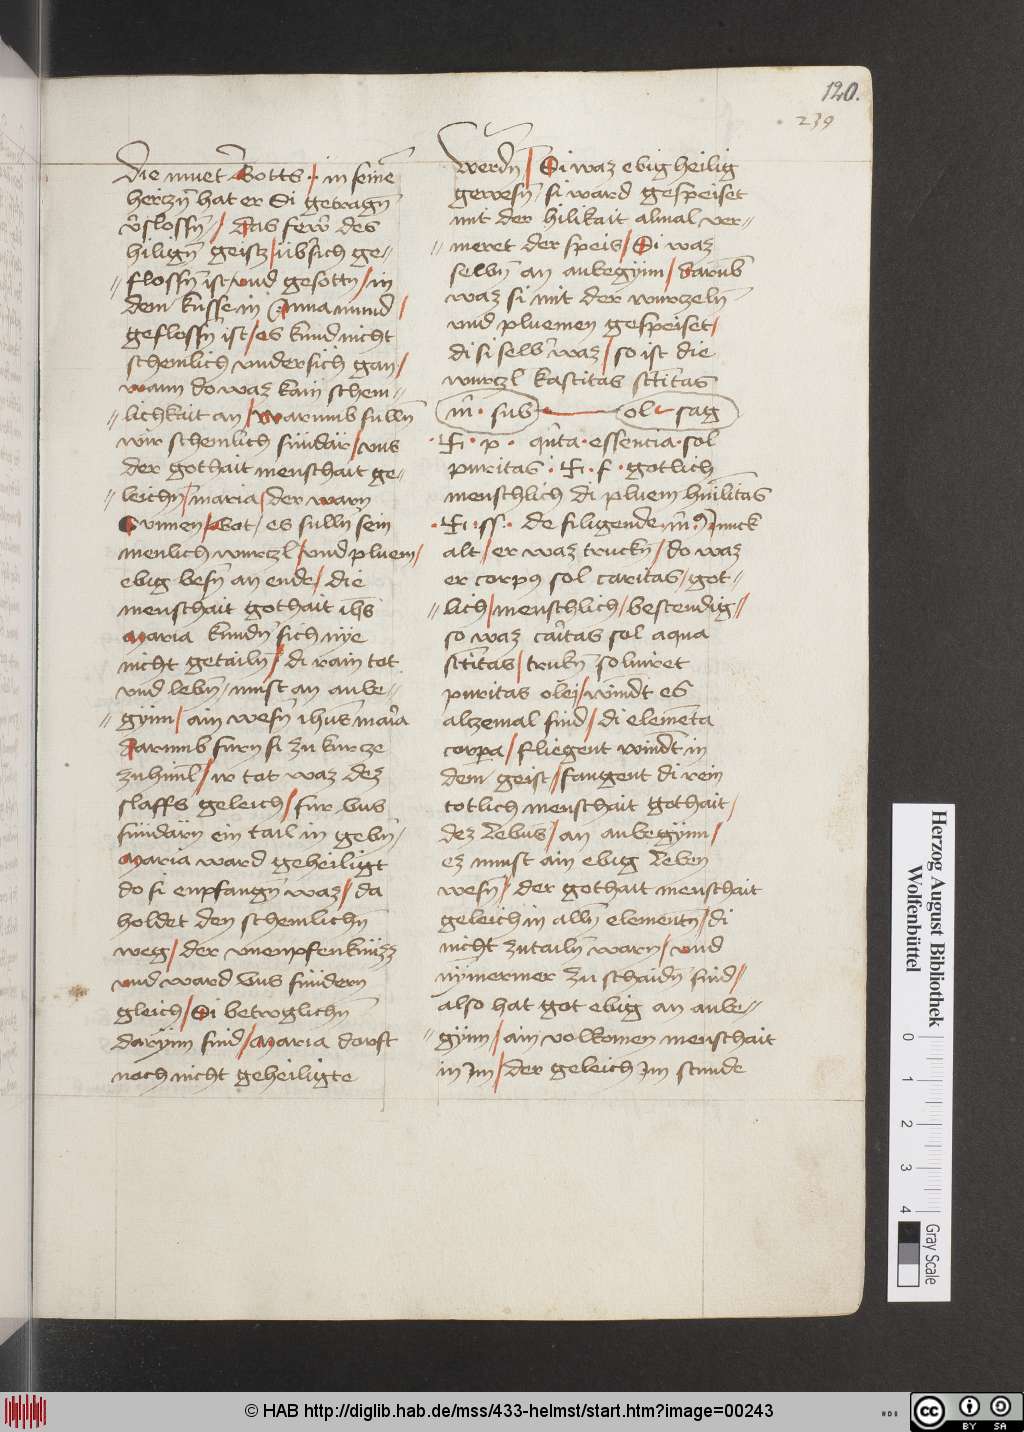 120.
239
die muet Gotts · in seine
herczn hat er Si getragn
vslossn / das fewr des
hiligen geistz / übsich ge=
flossn ist und gesottn / in
dem kusse in Anna mund /
geflossn ist / es kund nicht
schemlich undersich gan /
wann do waz kain schem=
lichkait an / warumb sulln
wir schemlich sündär / uns
der gothait menschait ge=
leichn / maria / der warn
Sunnen / Got / es sulln sein
menlich wurczl / und pluem /
ebig besn an ende / die
menschait gothait ihs
maria kundn sich nye
nicht getailn / di rain tot
und lebn / must an anbe=
gynn / ain wesn ihus maria
darumb furn si zu kurcze
zu himl / ir tot waz dez
slaffs geleich / fur uns
sündärn ein tail in gebn /
maria ward geheiligt
do si enpfangn waz / da
holdet den schemlichn
weg / der unenpfenknüzz
und ward uns sündern
gleich / Si betroglichn
darynn sind / maria dorft
noch nicht geheiligte
werdn / Si waz ebig heilig
gewesn / si ward gespeiset
mit der hilikait almal ver=
meret der speis / Si waz
selbn an anbegynn / darumb
waz si mit der wurczeln
und pluemen gespeiset /
di si selbr waz / so ist die
wurczl kastitas sctitas
m · sub ol · sag
· p · qnta · essencia · sol
puritas · f · gotlich
menschlich di pluem humilitas
· ss · de filigende m · muck
alt / er waz truckn / do waz
er corpus sol caritas / got=
lich / menschlich / bestendig /
so waz caritas sol aqua
sctitas / trukn soluiret
puritas olei / windt es
alczemal sind / di elemeta
corpa / fliegent windt in
dem geist / fangent di rein
totlich menschait gothait /
dez lebns / an anbegynn /
ez must ain ebig leben
wesn / der gothait menschait
geleich in alln elementn / di
nicht zutailn warn / und
nymermer zu schaidn sind /
also hat got ebig an anbe=
gynn / ain volkomen menschait
in Im / der geleich Im stunde
Herzog August Bibliothek
Wolfenbüttel
0
1
2
3
4
Gray Scale
© HAB http://diglib.hab.de/mss/433-helmst/start.htm?image=00243
HAB
cc
BY SA